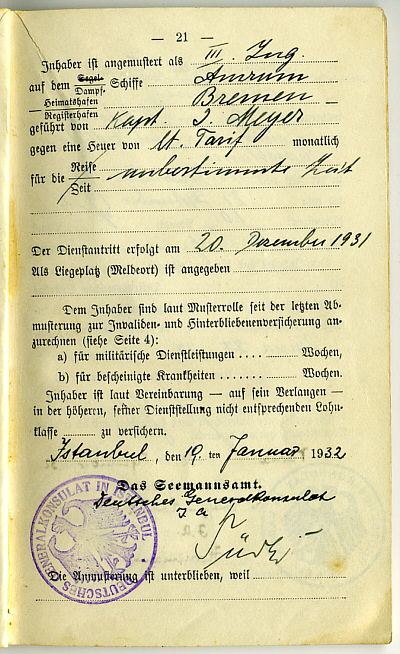 — 21 —
Inhaber ist angemustert als III. Ing
auf dem Segel- Dampf- Schiffe Amrum
Heimatshafen Bremen
Registerhafen
geführt von Kapt. J. Meyer
gegen eine Heuer von lt. Tarif monatlich
für die Reise unbestimmte Zeit
Zeit
Der Dienstantritt erfolgt am 20. Dezember 1931
Als Liegeplatz (Meldeort) ist angegeben
Dem Inhaber sind laut Musterrolle seit der letzten Ab-
musterung zur Invaliden- und Hinterbliebenenversicherung an-
zurechnen (siehe Seite 4):
a) für militärische Dienstleistungen .... Wochen,
b) für bescheinigte Krankheiten ...... Wochen.
Inhaber ist laut Vereinbarung — auf sein Verlangen —
in der höheren, seiner Dienststellung nicht entsprechenden Lohn-
klasse ........ zu versichern.
Istanbul, den 19. ten Januar 1932
Das Seemannsamt.
Deutsches Generalkonsulat
J. A.
DEUTSCHES GENERALKONSULAT IN ISTANBUL
Die Anmusterung ist unterblieben, weil